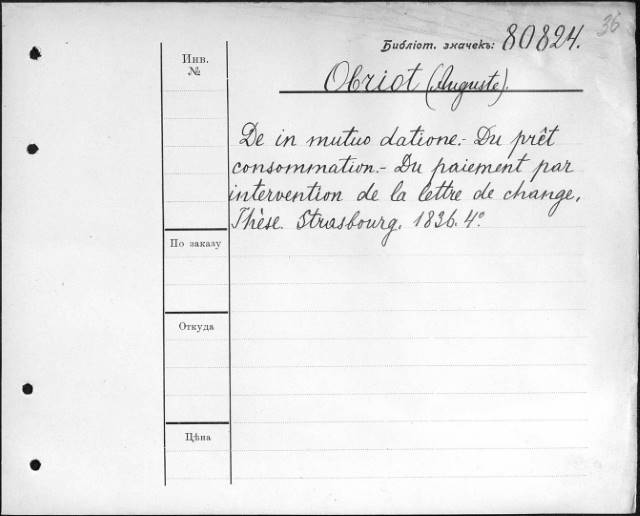 36
Библіот. значекъ: 80824.
Инв.
№
Obriot (Auguste).
De in mutuo datione.- Du prêt
consommation.- Du paiement par
intervention de la lettre de change.
Thèse. Strasbourg. 1836. 4º
По заказу
Откуда
Цѣна